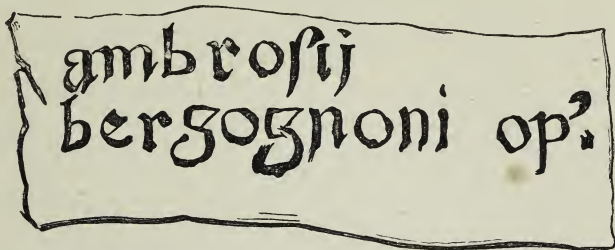 ambroſij
bergognoni op⁹.